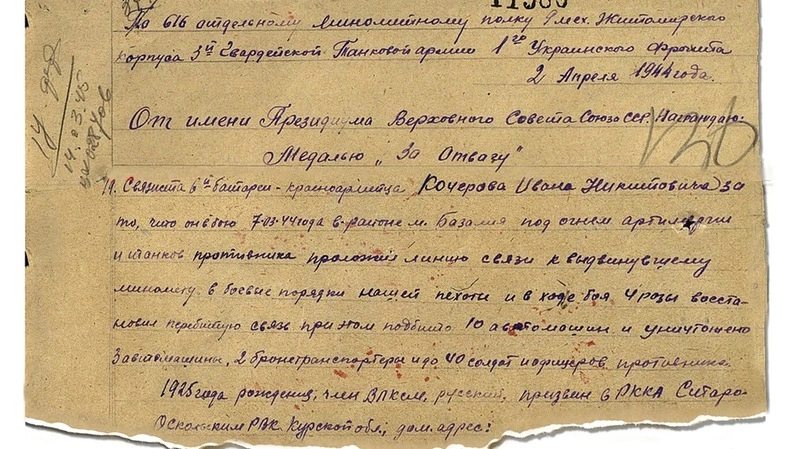 11580
По 616 отдельному Минометному полку 9 мех. Житомирского
корпуса 3й Гвардейской Танковой армии 1го Украинского Фронта
2 Апреля 1944 года.
От имени Президиума Верховного Совета Союза ССР, Награждаю:
Медалью „За Отвагу"
1. Связиста 6й батареи - красноармейца Кочерова Ивана Никитовича за
то, что он в бою 7.03.44 года в районе м. Базалия под огнем артиллерии
и танков противника проложил линию связи к выдвинувшему
миномету в боевые порядки нашей пехоты и в ходе боя 4 розы восста-
новил перебитую связь при чом подбито 10 автомашин и уничтожено
3 автомашины, 2 бронетранспортера и до 40 солдат и офицеров противника.
1925 года рождения, член ВЛКСМ, русский, призван в РККА Ситаро-
Оскольским РВК Курской обл., дом. адрес:
14.03.45